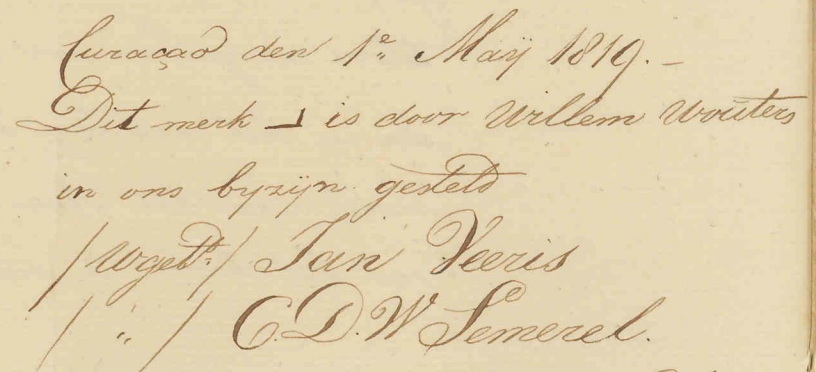 Curaçao den 1e. Maÿ 1819. –
Dit merk ⅃ is door Willem Wouters
in ons byzijn gesteld
/ Wgett: / Jan Veeris
/ " / C. D. W Semerel.